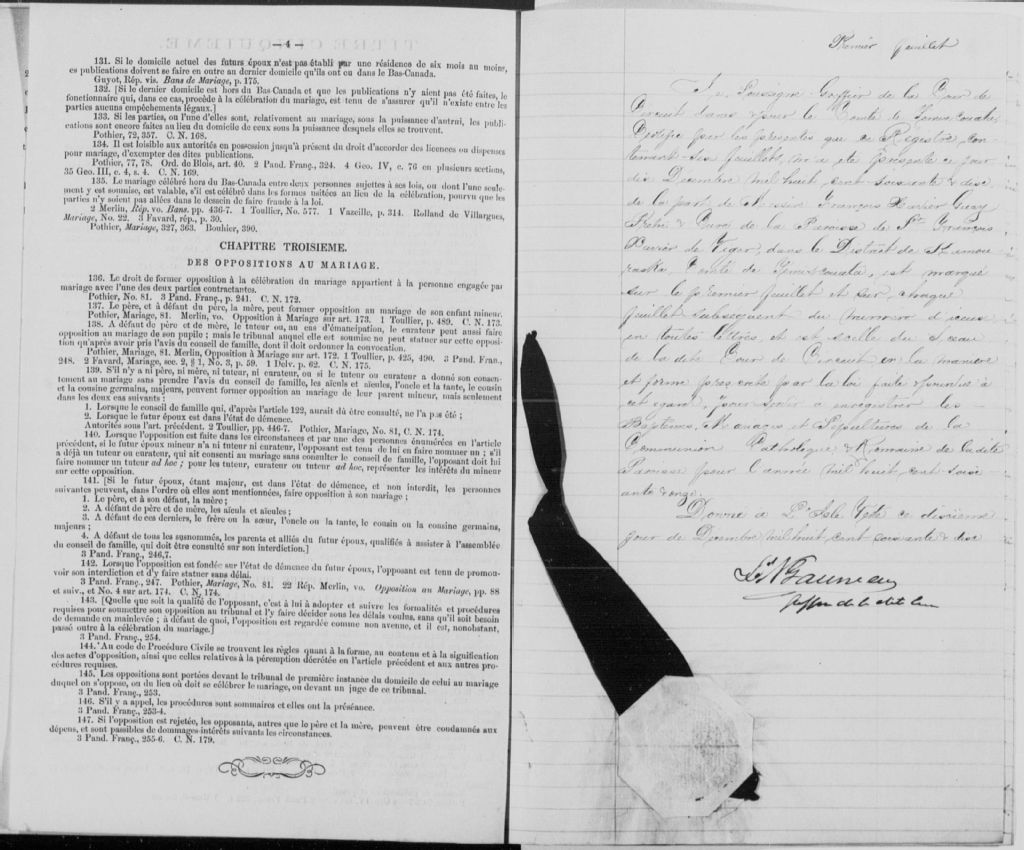 — 4 —
131. Si le domicile actuel des futurs époux n'est pas établi par une résidence de six mois au moins,
ces publications doivent se faire en outre au dernier domicile qu'ils ont eu dans le Bas-Canada.
Guyot, Rép. vis. Bans de Mariage, p. 175.
132. [Si le dernier domicile est hors du Bas Canada et que les publications n'y aient pas été faites, le
fonctionnaire qui, dans ce cas, procède à la célébration du mariage, est tenu de s'assurer qu'il n'existe entre les
parties aucuns empêchements légaux.]
133. Si les parties, ou l'une d'elles sont, relativement au mariage, sous la puissance d'autrui, les publi-
cations sont encore faites au lieu du domicile de ceux sous la puissance desquels elles se trouvent.
Pothier, 72, 357. C. N. 168.
134. Il est loisible aux autorités en possession jusqu'à présent du droit d'accorder des licences ou dispenses
pour mariage, d'exempter des dites publications.
Pothier, 77, 78. Ord. de Blois, art. 40. 2 Pand. Franç., 324. 4 Geo. IV, c. 76 en plusieurs sections,
35 Geo. III, c. 4, s. 4. C. N. 169.
135. Le mariage célébré hors du Bas-Canada entre deux personnes sujettes à ses lois, ou dont l'une seule-
ment y est soumise, est valable, s'il est célébré dans les formes usitées au lieu de la célébration, pourvu que les
parties n'y soient pas allées dans le dessein de faire fraude à la loi.
2 Merlin, Rép. vo. Bans. pp. 436-7. 1 Toullier, No. 577. 1 Vazeille, p. 314. Rolland de Villargues,
Mariage, No. 22. 3 Favard, rép., p. 30.
Pothier, Mariage, 327, 363. Bouhier, 390.
CHAPITRE TROISIEME.
DES OPPOSITIONS AU MARIAGE.
136. Le droit de former opposition à la célébration du mariage appartient à la personne engagée par
mariage avec l'une des deux parties contractantes.
Pothier, No. 81. 3 Pand. Franç., p. 241. C. N. 172.
137. Le père, et à défaut du père, la mère, peut former opposition au mariage de son enfant mineur.
Pothier, Mariage, 81. Merlin, vo. Opposition à Mariage sur art. 173. 1 Toullier, p. 489. C. N. 173.
138. A défaut de père et de mère, le tuteur ou, au cas d'émancipation, le curateur peut aussi faire
opposition au mariage de son pupille ; mais le tribunal auquel elle est soumise ne peut statuer sur cette opposi-
tion qu'après avoir pris l'avis du conseil de famille, dont il doit ordonner la convocation.
Pothier, Mariage, 81. Merlin, Opposition à Mariage sur art. 172. 1 Toullier, p. 425, 490. 3 Pand. Fran.,
248. 2 Favard, Mariage, sec. 2, § 1, No. 3, p. 59. 1 Delv. p. 62. C. N. 175.
139. S'il n'y a ni père, ni mère, ni tuteur, ni curateur, ou si le tuteur ou curateur a donné son consen-
tement au mariage sans prendre l'avis du conseil de famille, les aïeuls et aïeules, l'oncle et la tante, le cousin
et la cousine germains, majeurs, peuvent former opposition au mariage de leur parent mineur, mais seulement
dans les deux cas suivants :
1. Lorsque le conseil de famille qui, d'après l'article 122, aurait dû être consulté, ne l'a pas été ;
2. Lorsque le futur époux est dans l'état de démence.
Autorités sous l'art. précédent. 2 Toullier, pp. 446-7. Pothier, Mariage, No. 81, C. N. 174.
140. Lorsque l'opposition est faite dans les circonstances et par une des personnes énumérées en l'article
précédent, si le futur époux mineur n'a ni tuteur ni curateur, l'opposant est tenu de lui en faire nommer un ; s'il
a déjà un tuteur ou curateur, qui ait consenti au mariage sans consulter le conseil de famille, l'opposant doit lui
faire nommer un tuteur ad hoc ; pour les tuteur, curateur ou tuteur ad hoc, représenter les intérêts du mineur
sur cette opposition.
141. [Si le futur époux, étant majeur, est dans l'état de démence, et non interdit, les personnes
suivantes peuvent, dans l'ordre où elles sont mentionnées, faire opposition à son mariage ;
1. Le père, et à son défaut, la mère ;
2. A défaut de père et de mère, les aïeuls et aïeules ;
3. A défaut de ces derniers, le frère ou la sœur, l'oncle ou la tante, le cousin ou la cousine germains,
majeurs ;
4. A défaut de tous les susnommés, les parents et alliés du futur époux, qualifiés à assister à l'assemblée
du conseil de famille, qui doit être consulté sur son interdiction.]
3 Pand. Franç., 246,7.
142. Lorsque l'opposition est fondée sur l'état de démence du futur époux, l'opposant est tenu de promou-
voir son interdiction et d'y faire statuer sans délai.
3 Pand. Franç., 247. Pothier, Mariage, No. 81. 22 Rép. Merlin, vo. Opposition au Mariage, pp. 88
et suiv., et No. 4 sur art. 174. C. N. 174.
143. [Quelque soit la qualité de l'opposant, c'est à lui à adopter et suivre les formalités et procédures
requises pour soumettre son opposition au tribunal et l'y faire décider sous les délais voulus, sans qu'il soit besoin
de demande en mainlevée ; à défaut de quoi, l'opposition est regardée comme non avenue, et il est, nonobstant,
passé outre à la célébration du mariage.]
3 Pand. Franç., 254.
144. Au code de Procédure Civile se trouvent les règles quant à la forme, au contenu et à la signification
des actes d'opposition, ainsi que celles relatives à la péremption décrétée en l'article précédent et aux autres pro-
cédures requises.
145. Les oppositions sont portées devant le tribunal de première instance du domicile de celui au mariage
duquel on s'oppose, ou du lieu où doit se célébrer le mariage, ou devant un juge de ce tribunal.
3 Pand. Franç., 253.
146. S'il y a appel, les procédures sont sommaires et elles ont la préséance.
3 Pand. Franç., 253-4.
147. Si l'opposition est rejetée, les opposants, autres que le père et la mère, peuvent être condamnés aux
dépens, et sont passibles de dommages-intérêts suivants les circonstances.
3 Pand. Franç., 255-6. C. N. 179.
Premier feuillet
Je, Soussigné Greffier de la Cour de
Circuit dans & pour le Comté de Témiscouata
Certifie par les présentes que ce Registre, con-
tenant feuillets, m'a été présenté ce jour
dix Décembre mil huit cent soixante & dix
de la part de Messire François Xavier Guay
Prêtre & Curé de la Paroisse de St. François
Xavier de Viger, dans le District de Kamou
raska, Comté de Témiscouata, est marqué
sur le premier feuillet et sur chaque
feuillet subséquent du numéro d'icelui
en toutes lettres, et est scellé du Sceau
de la dite Cour de Circuit en la manière
et forme prescrite par la loi faite & pourvue à
cet égard, pour servir à enregistrer les
Baptêmes, Mariages et Sépultures de la
Communion Catholique & Romaine de la dite
Paroisse pour l'année mil huit cent soix
ante & onze.
Donné à L'Isle Verte ce dixième
jour de Décembre mil huit cent soixante & dix
Gauvreau
Greffier de la dite Cour